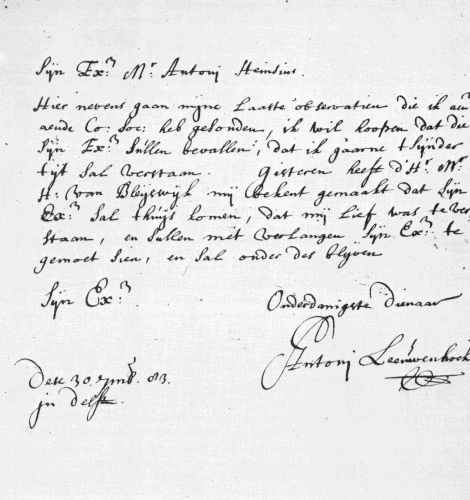 Sijn Ex:ᵐ Mʳ Antonij Heinsius.
Hier nevens gaan mijne Laaste observatien die ik aen
aende Co: Soc: heb gesonden, ik wil hoopen dat die
Sijn Ex:ᵐ Sullen bevallen, dat ik gaarne t Sijnder
tijt Sal verstaan. Gisteren heeft d'Hʳ Mʳ
H: van Bleijswijk mij bekent gemaakt dat Sijn
Ex:ᵐ Sal thuijs komen, dat mij lief was te ver
staan, en Sullen met verlangen Sijn Ex:ᵐ te
gemoet Sien, en Sal onder des blijven
Sijn Ex:ᵐ
Onderdanigste Dienaar
Antonj Leeuwenhoek
Dese 30 83.
jn Delft.